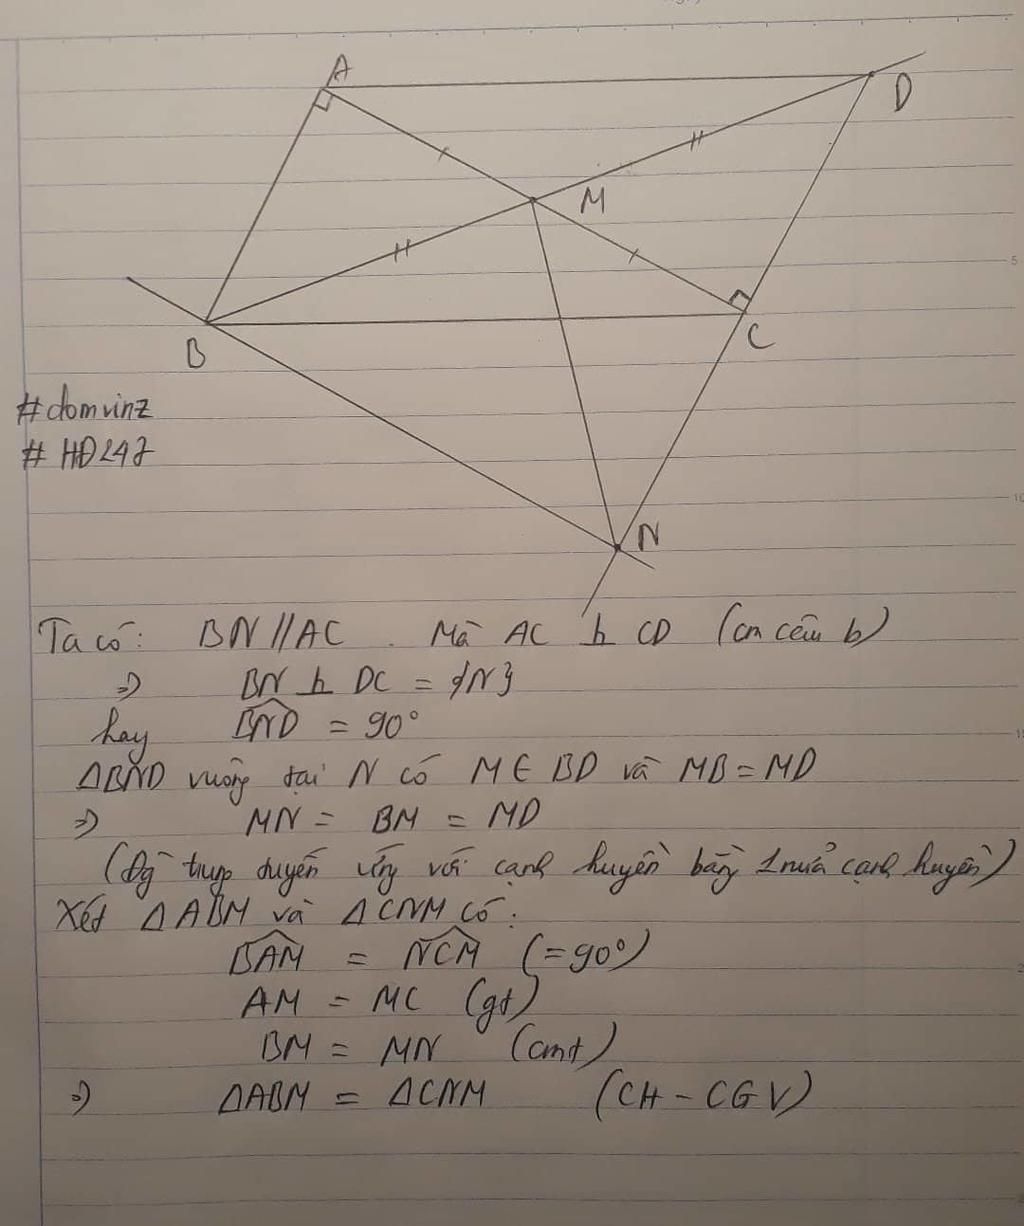 A
D
M
B
C
#domvinz
# HĐ247
N
Ta có: BN // AC . Mà AC ⊥ CD (cm câu b)
=> BN ⊥ DC = {N}
hay BND = 90°
ΔBND vuông tại N có M ∈ BD và MB = MD
=> MN = BM = MD
(Đg trung tuyến ứng với cạnh huyền bằng 1 nửa cạnh huyền)
Xét ΔABM và ΔCNM có:
BAM = NCM (=90°)
AM = MC (gt)
BM = MN (cmt)
=> ΔABM = ΔCNM (CH - CGV)